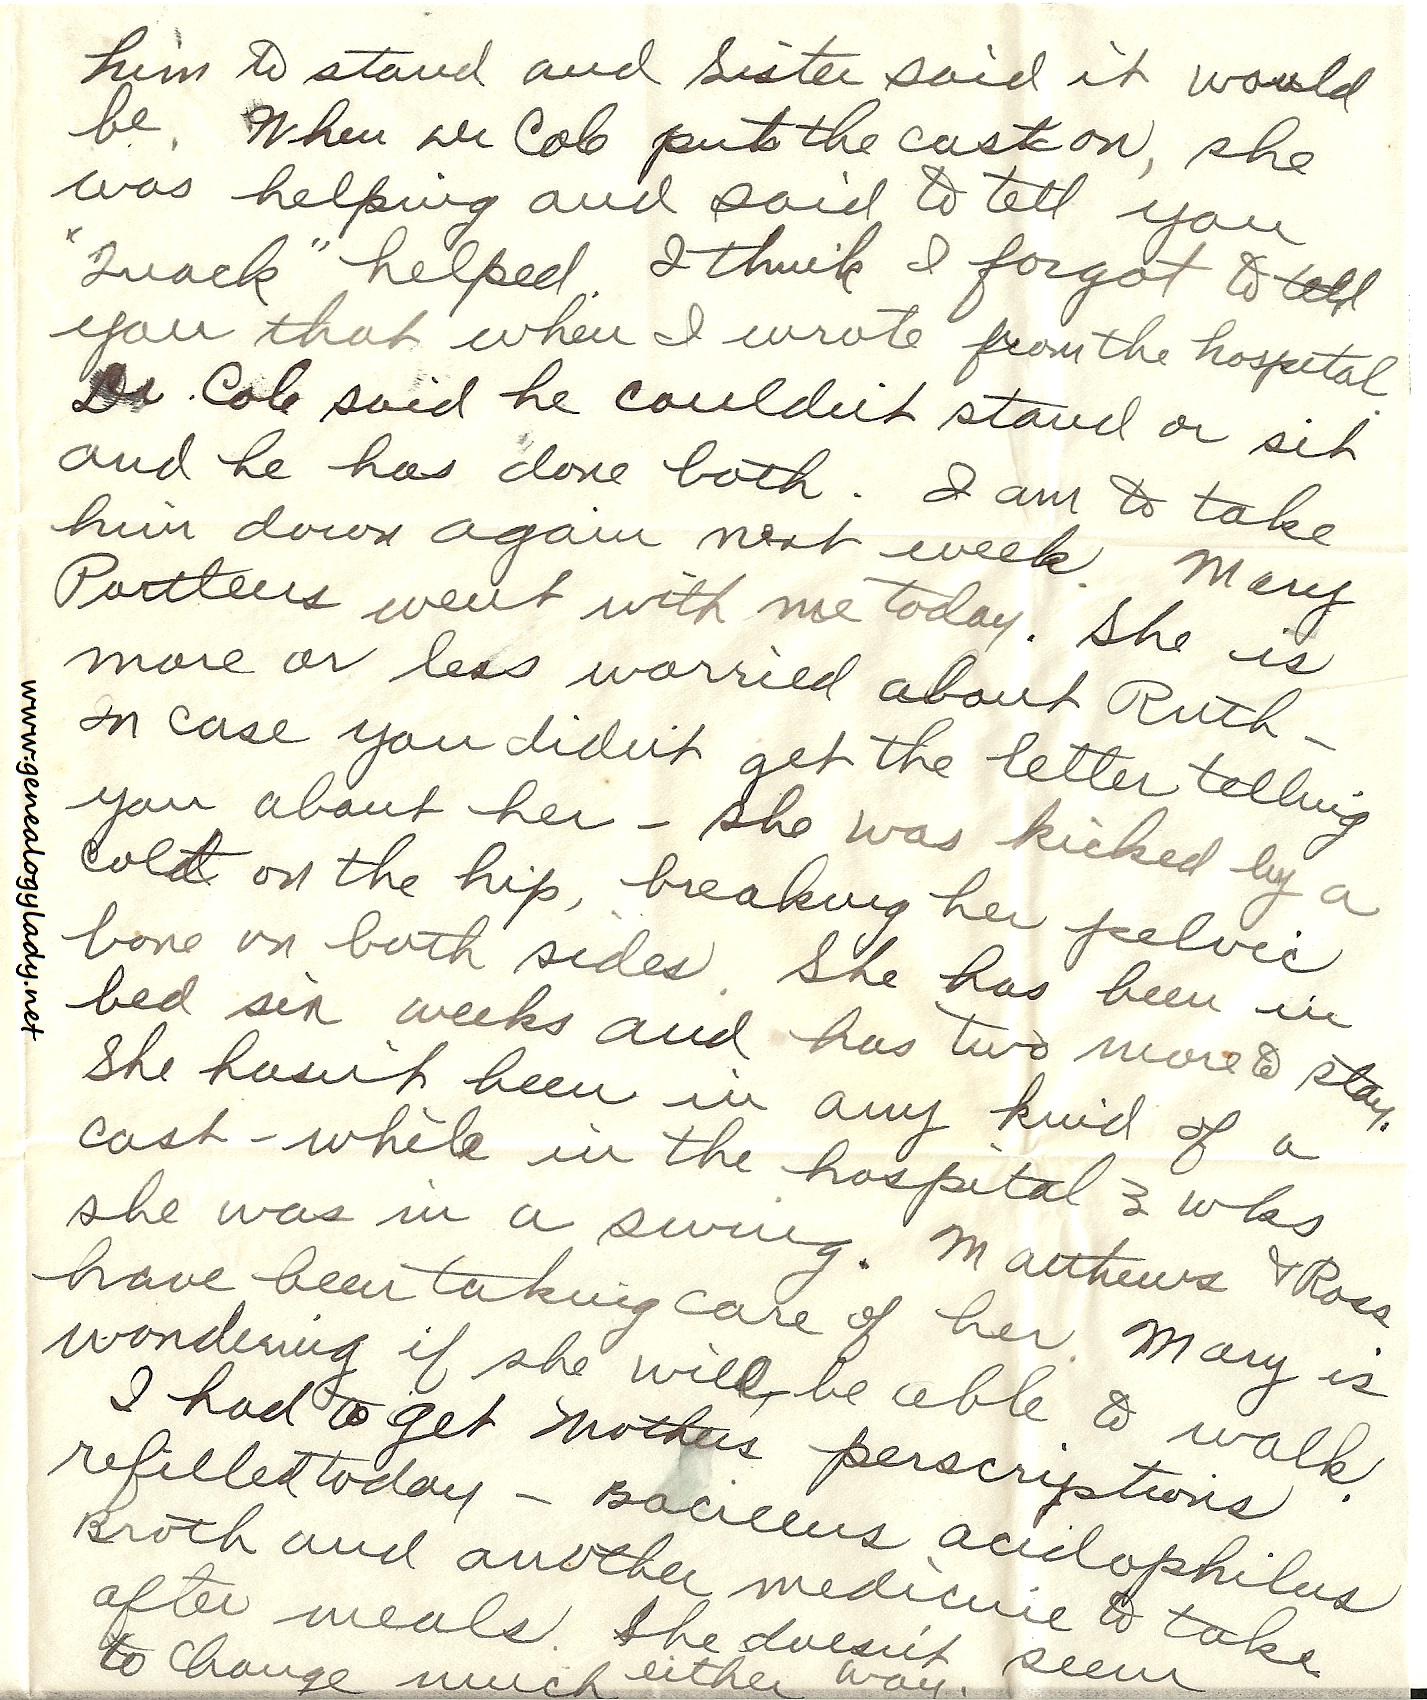 him to stand and Sister said it would
be. When Dr Cole put the cast on, she
was helping and said to tell you
"Quack" helped. I think I forgot to tell
you that when I wrote from the hospital.
Dr. Cole said he couldn't stand or sit
and he has done both. I am to take
him down again next week. Mary
Portteus went with me today. She is
more or less worried about Ruth –
In case you didn't get the letter telling
you about her – She was kicked by a
colt on the hip, breaking her pelvic
bone on both sides. She has been in
bed six weeks and has two more to stay.
She hasn't been in any kind of a
cast – while in the hospital 3 wks
she was in a swing. Matthews & Ross
have been taking care of her. Mary is
wondering if she will be able to walk.
I had to get Mother's perscriptions
refilled today – Bacillus acidophilus
Broth and another medicine to take
after meals. She doesn't seem
to change much either way.
www.genealogylady.net